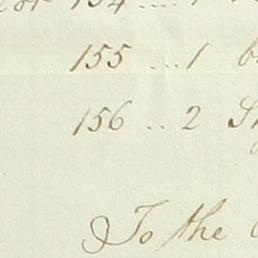 154 .... 1
155 ... 1
156 .. 2
To the